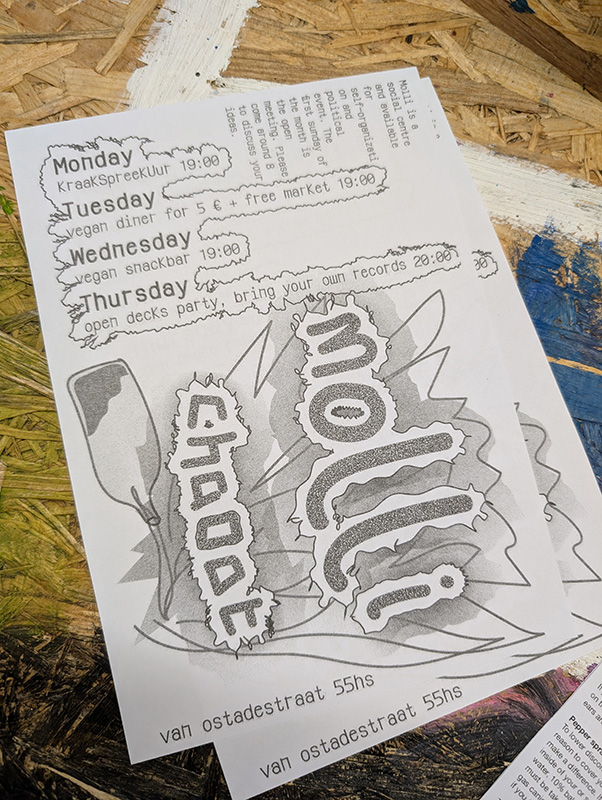 Molli is a
social centre
and available
for
self-organizati
on and
political
event. The
first sunday of
the month is
the open
meeting. Please
come around 8
to discuss your
ideas.
Monday
KraaKSpreeKUur 19:00
Tuesday
vegan diner for 5 € + free market 19:00
Wednesday
vegan snackbar 19:00
Thursday
open decks party, bring your own records 20:00
00
molli
chaoot
van ostadestraat 55hs
van ostadestraat 55hs
Pepper
to lower
reason to cover
make a difference.
inside of your
water, 10%
must be
gas
if you